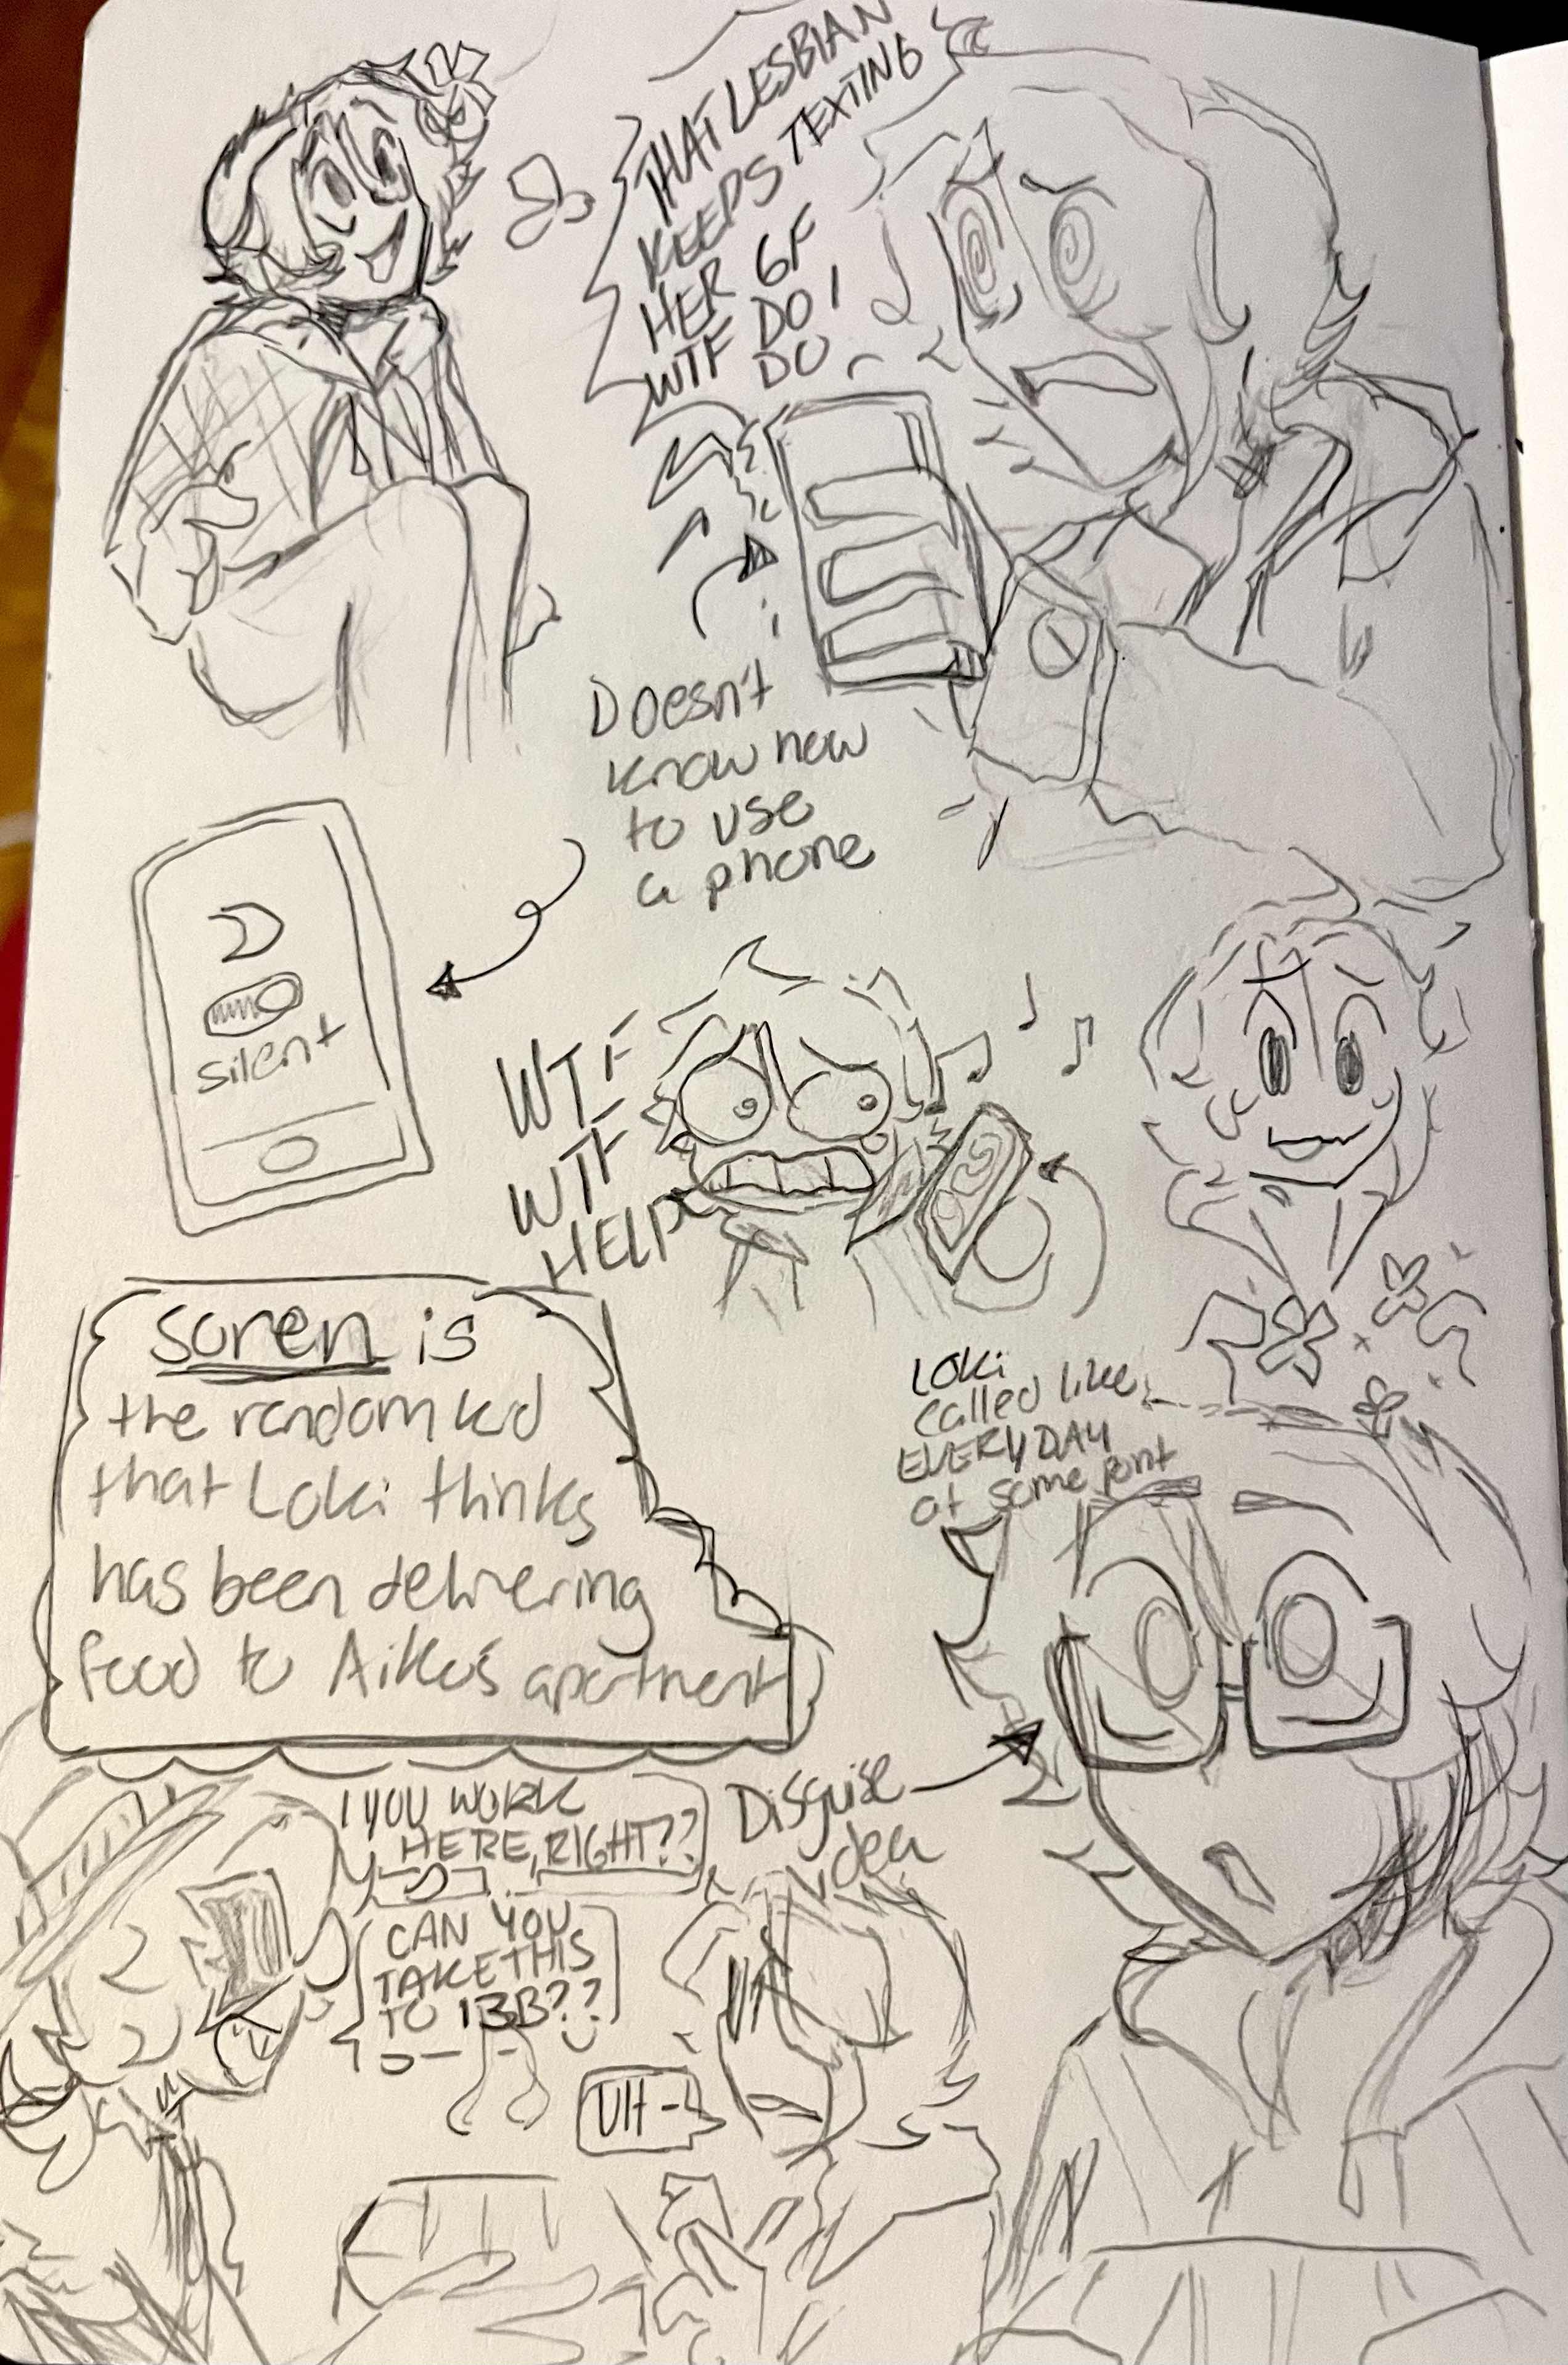 THAT LESBIAN
KEEPS TEXTING
HER GF
WTF DO I
DO
Doesn't
know how
to use
a phone
silent
WTF
WTF
HELP
Soren is
the random kid
that Loki thinks
has been delivering
food to Aiko's apartment
LOKi
called like
EVERYDAY
at some point
Disguise
idea
YOU WORK
HERE, RIGHT??
CAN YOU
TAKE THIS
TO 13B??
UH-